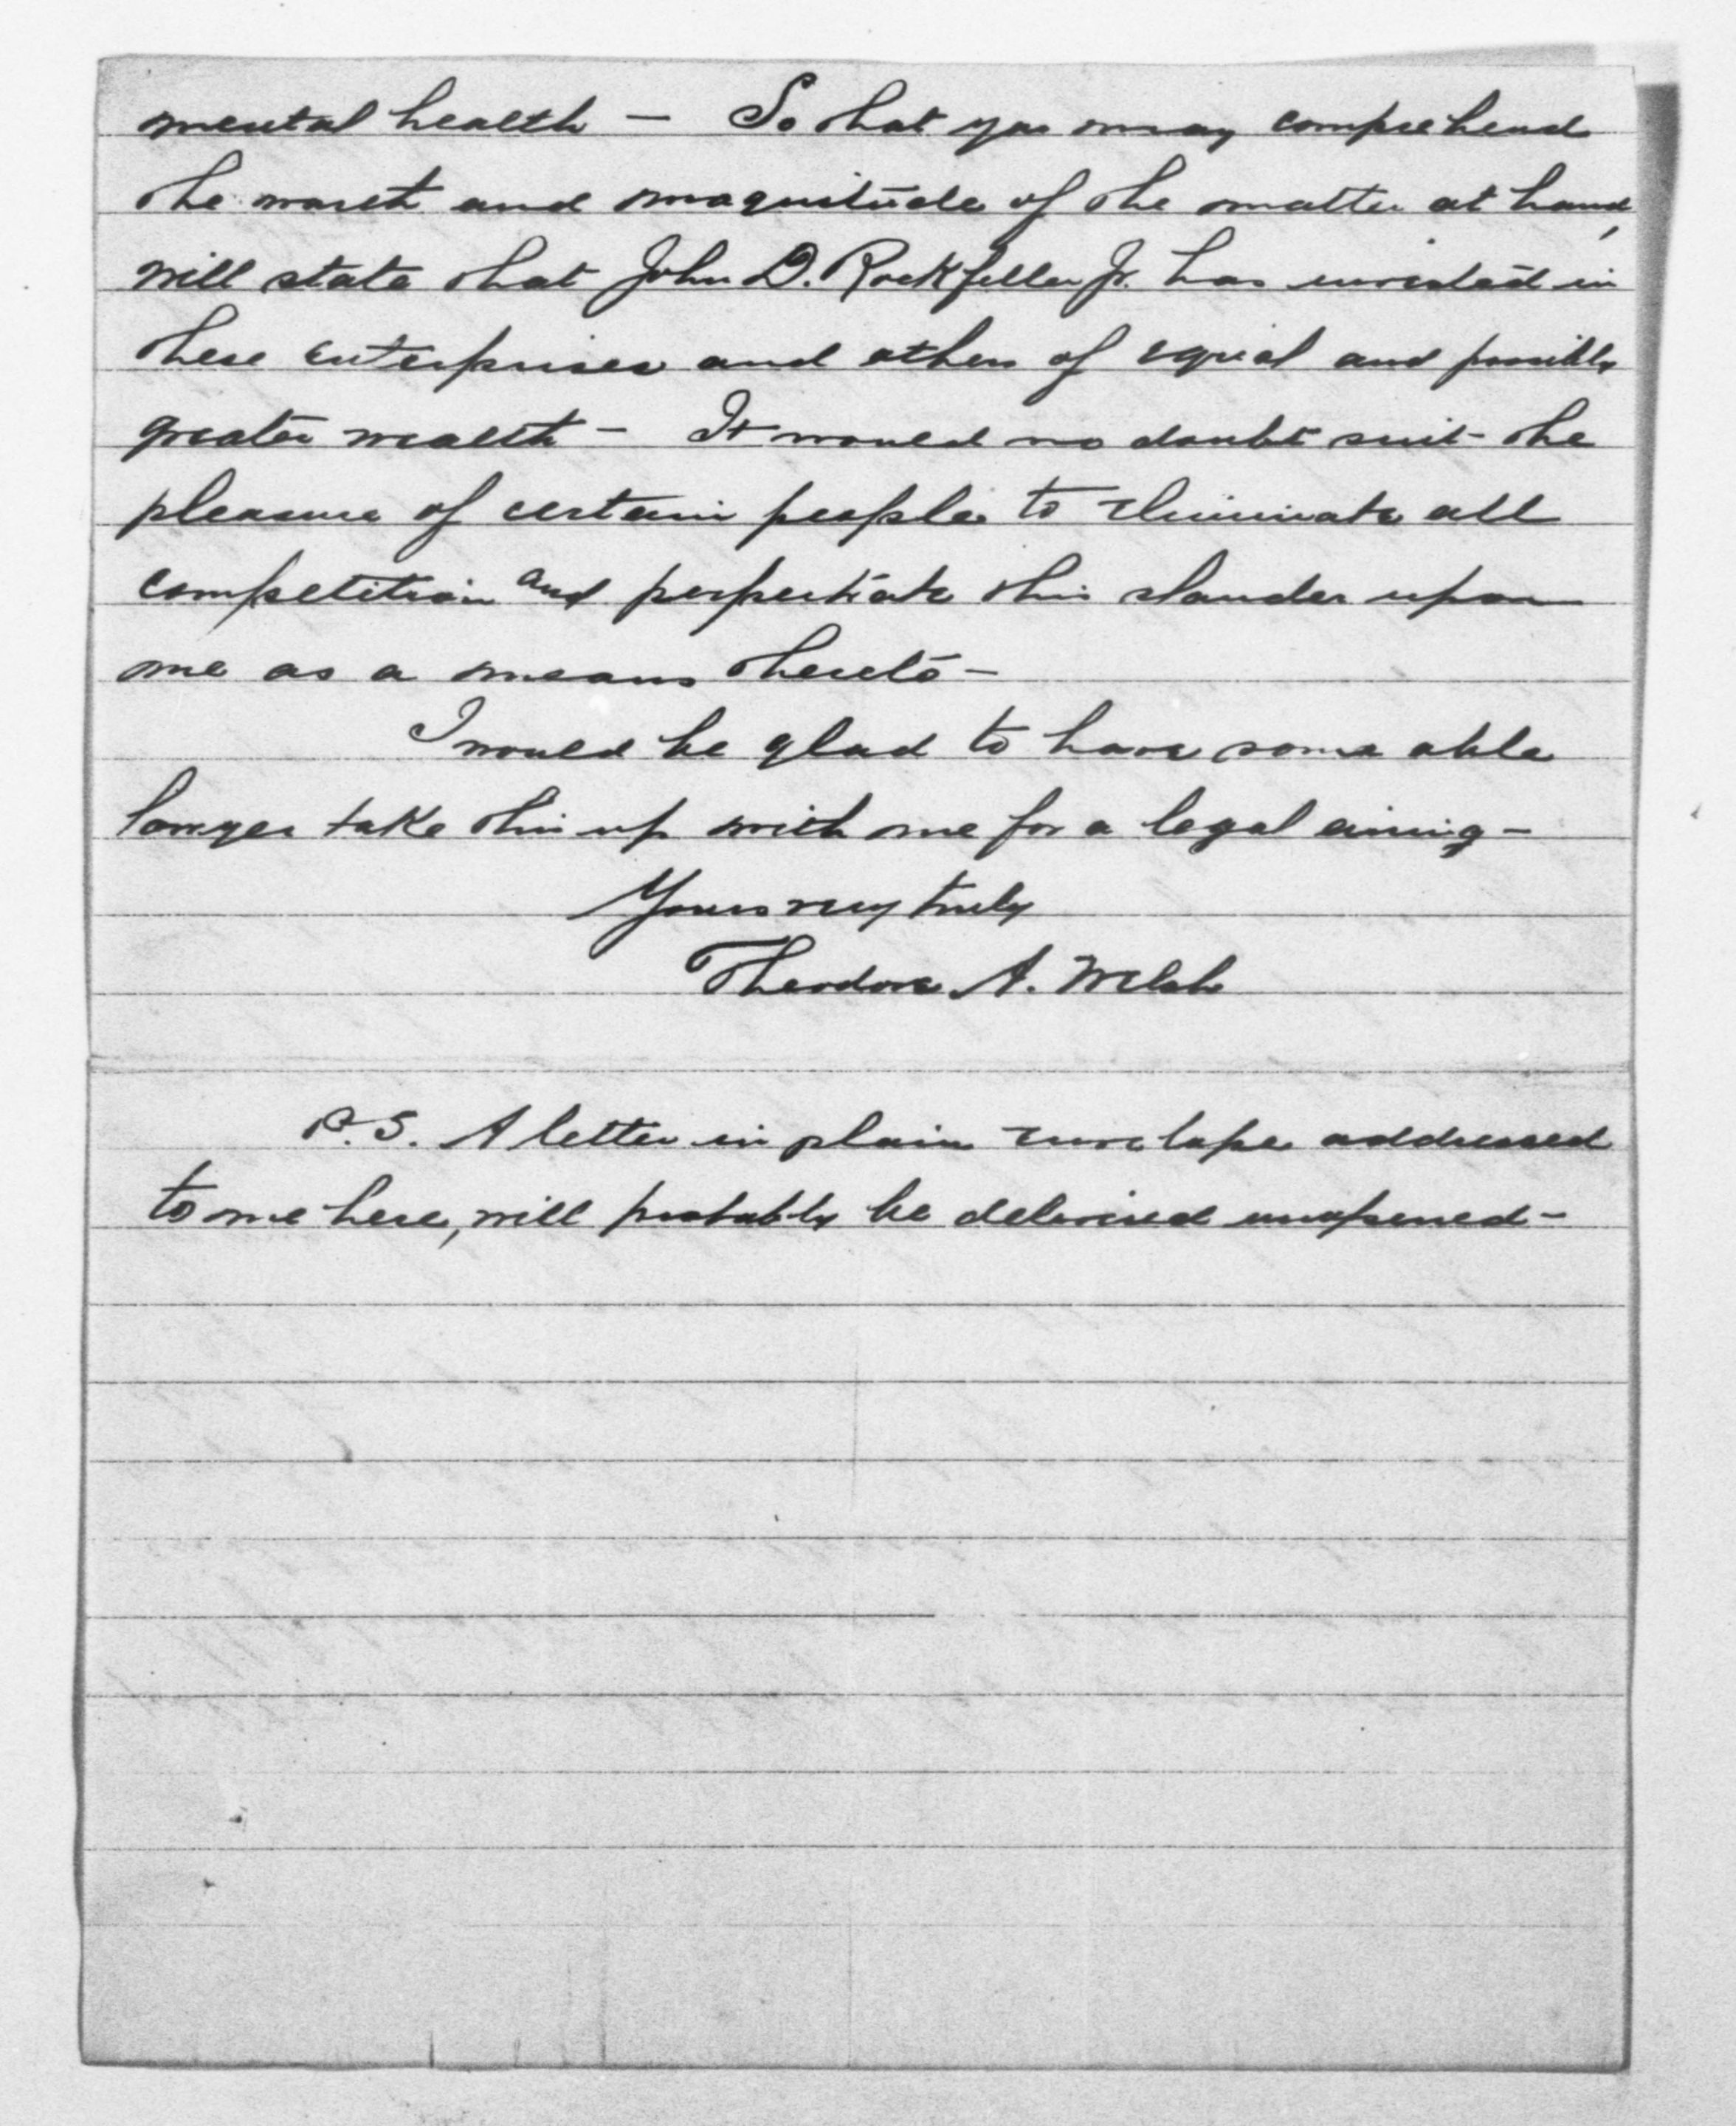 mental health – So that you may comprehend
the worth and magnitude of the matter at hand,
will state that John D. Rockfeller Jr. has invested in
these enterprises and others of equal and possibly
greater wealth – It would no doubt suit the
pleasure of certain people to eliminate all
competition and perpetrate this slander upon
me as a means thereto –
I would be glad to have some able
lawyer take this up with me for a legal airing –
Yours very truly
Theodore A. Welsh
P.S. A letter in plain envelope addressed
to me here, will probably be delivered unopened –